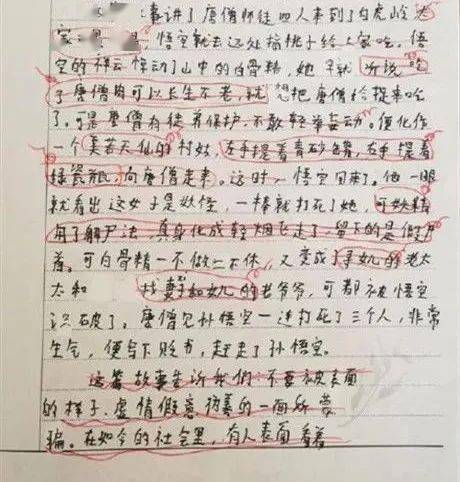 事讲了唐僧师徒四人来到了白虎岭,大
家 ,悟空就去远处摘桃子给大家吃。悟
空的祥云惊动了山中的白骨精,她早就听说吃
了唐僧肉可以长生不老,就想把唐僧给捉来吃
了。可是唐僧有徒弟保护,不敢轻举妄动。便化作
一个美若天仙的村姑,左手提着青砂罐,右手提着
绿瓷瓶,向唐僧走来。这时,悟空回来了。他一眼
就看出这女子是妖怪,一棒就打死了她,可妖精
用了解尸法,真身化成轻烟飞走了,留下的是假尸
首。可白骨精一不做二不休,又变成了寻女儿的老太
太和 找妻子和女儿的老爷爷,可都被悟空
识破了。唐僧见孙悟空一连打死了三个人,非常
生气,便写下贬书,赶走了孙悟空。
这篇故事告诉我们:不要被表面
的样子、虚情假意伪善的一面所蒙
骗。在如今的社会里,有人表面看着